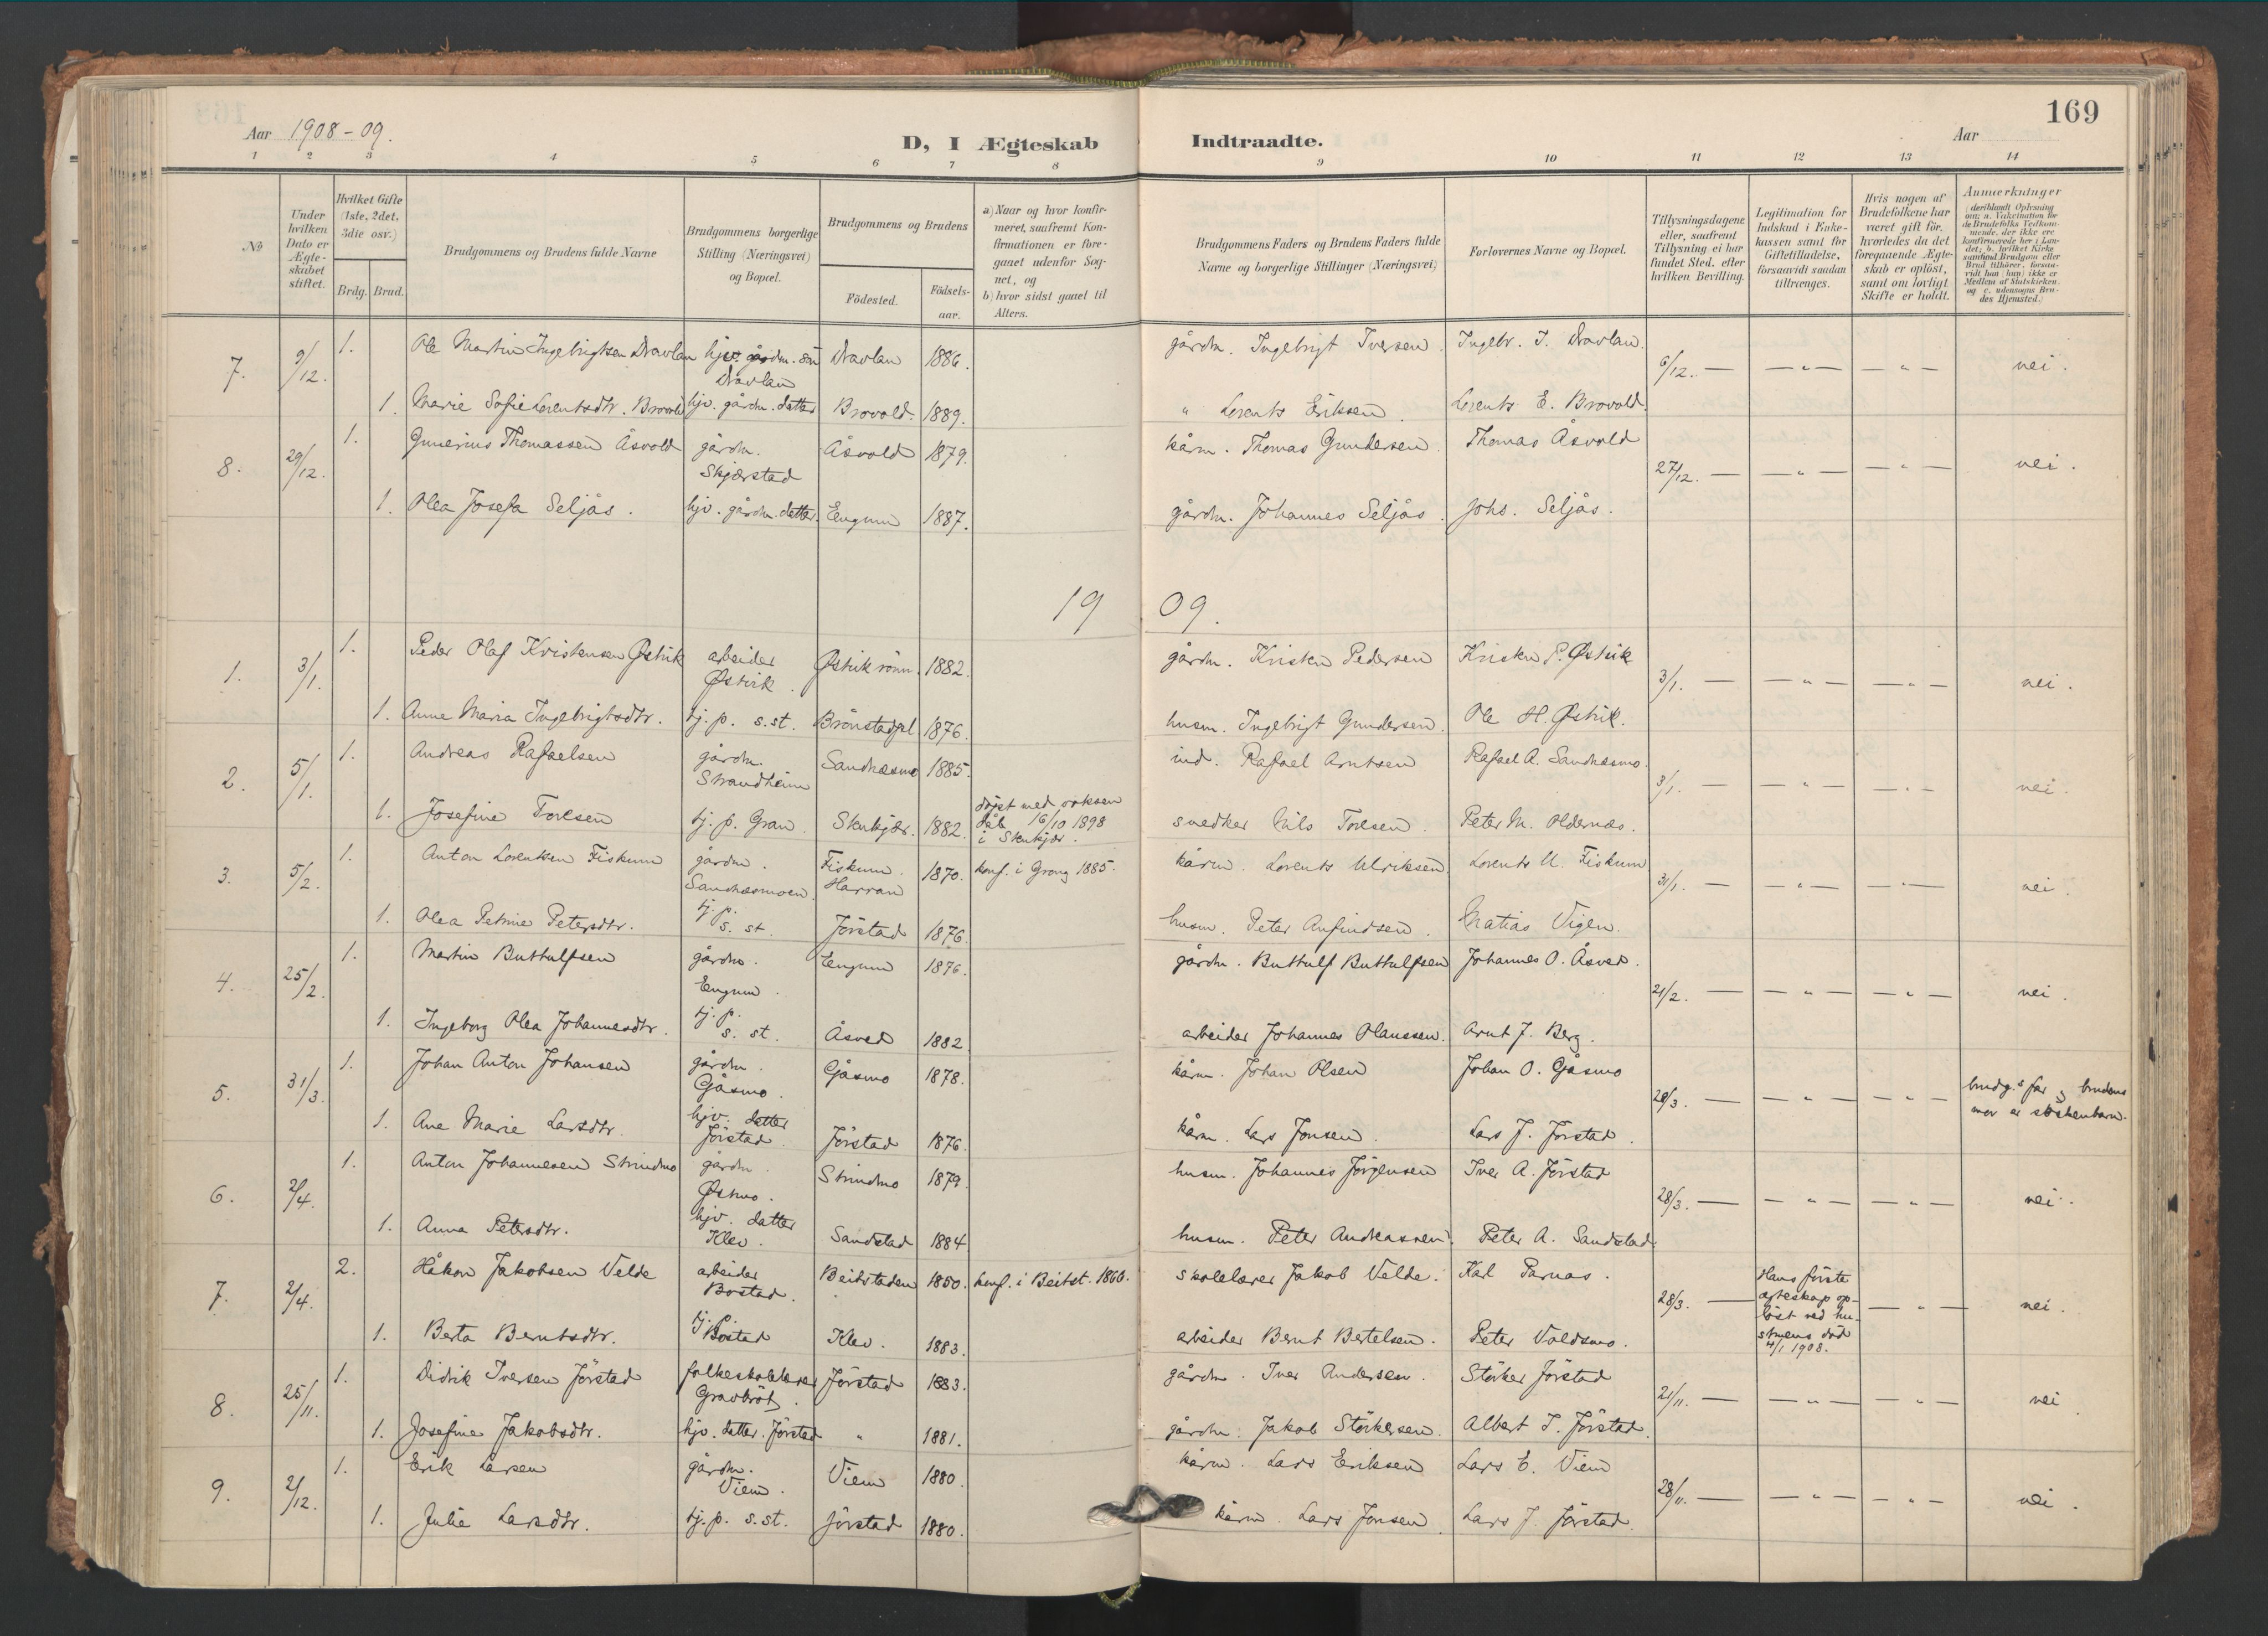 169
Aar 1908-09.
D, I Ægteskab Indtraadte.
Aar
1 2 3 4 5 6 7 8 9 10 11 12 13 14
No
Under hvilken Dato er Ægte-skabet stiftet.
Hvilket Gifte (1ste, 2det, 3die osv.)
Brdg. Brud.
Brudgommens og Brudens fulde Navne
Brudgommens borgerlige Stilling (Næringsvei) og Bopæl.
Brudgommens og Brudens
Födested.
Födsels-aar.
a) Naar og hvor konfir-meret, saafremt Kon-firmationen er fore-gaaet udenfor Sog-net, og
b) hvor sidst gaaet til Alters.
Brudgommens Faders og Brudens Faders fulde Navne og borgerlige Stillinger (Næringsvei)
Forlovernes Navne og Bopæl.
Tillysningsdagene eller, saafremt Tillysning ei har fundet Sted, efter hvilken Bevilling.
Legitimation for Indskud i Enke-kassen samt for Giftetilladelse, forsaavidt saadan tiltrænges.
Hvis nogen af Brudefolkene har været gift för, hvorledes da det foregaaende Ægte-skab er oplöst, samt om lovligt Skifte er holdt.
Anmærkninger (deriblandt Oplysning om: a. Vakcination for de Brudefolks Vedkom-mende, der ikke ere konfirmerede her i Lan-det; b. hvilket Kirke-samfund Brudgom eller Brud tilhörer, forsaa-vidt han (hun) ikke er Medlem af Statskirken, og c. udensogns Bru-des Hjemsted.)
7. 9/12. 1. Ole Martin Ingebrigtsen Dravlan hjv. gårdm. sön Dravlan Dravlan 1886. gårdm. Ingebrigt Iversen Ingebr. I. Dravlan. 6/12. — — „ — — „ — nei.
1. Marie Sofie Lorentsdtr. Brovold hjv. gårdm. datter Brovold. 1889. „ Lorents Eriksen. Lorents E. Brovold.
8. 29/12. 1. Gunerius Thomassen Åsvold gårdm. Skjærstad Åsvold 1879. kårm. Thomas Gundersen Thomas Åsvold 27/12. — — „ — — „ — nei.
1. Olea Josefa Seljås. hjv. gårdm. datter. Eengum 1887. gårdm. Johannes Seljås. Johs. Seljås.
19 09.
1. 3/1. 1. Peder Olaf Kristensen Østvik arbeider Østvik. Østvik rönn. 1882. gårdm. Kristen Pedersen Kristen P. Østvik 3/1. — — „ — — „ — nei.
1. Anne Maria Ingebrigtsdtr. tj. p. s.st. Brönstadpl 1876. husm. Ingebrigt Gundersen. Ole H. Østvik.
2. 5/1. 1. Andreas Rafaelsen gårdm. Strandheim Sandnæsmo 1885. ind. Rafael Arntsen Rafael A. Sandnæsmo. 3/1. — — „ — — „ — nei.
1. Josefine Toresen tj. p. Gran. Stenkjær. 1882. döpt med voksen dåb 16/10 1898 i Stenkjær. snedker Nils Toresen. Peter M. Oldernæs.
3. 5/2. 1. Anton Lorentsen Fiskum gårdm. Sandnæsmoen. Fiskum. Harran 1870. konf. i Grong 1885. kårm. Lorents Ulriksen. Lorents U. Fiskum 31/1. — — „ — — „ — nei.
1. Olea Petrine Petersdtr. tj. p. s. st. Jörstad 1876. husm. Peter Anfindsen. Matias Vigen.
4. 25/2. 1. Martin Buttulfsen gårdm. Eengum. Eengum 1876. gårdm. Buttulf Buttulfsen Johannes O. Åsved. 21/2. — — „ — — „ — nei.
1. Ingeborg Olea Johannesdtr. tj. p. s. st. Åsved 1882 arbeider Johannes Olaussen. Arnt J. Berg.
5. 31/3. 1. Johan Anton Johansen gårdm. Gåsmo. Gåsmo 1878. kårm. Johan Olsen Johan O. Gåsmo 28/3. — — „ — — „ — brudg.s far og brudens mor er söskenbarn.
1. Ane Marie Larsdtr. hjv. datter Jörstad. Jörstad 1876. kårm. Lars Jonsen. Lars J. Jörstad.
6. 2/4. 1. Anton Johannesen Strindmo gårdm. Østmo. Strindmo 1879. husm. Johannes Jörgensen Iver A. Jörstad 28/3. — — „ — — „ — nei.
1. Anna Petersdtr. hjv. datter Klev. Sandstad 1884 husm. Peter Andreassen. Peter A. Sandstad.
7. 2/4. 2. Håkon Jakobsen Velde arbeider Bostad. Beitstaden 1850. konf. i Beitst. 1866. skolelærer Jakob Velde. Karl Parnas. 28/3. — Hans förste ægteskap op-löst ved hu-struens död 4/1 1908. — „ — nei.
1. Berta Berntsdtr. tj. p. Bostad Klev. 1883. arbeider Bernt Bertelsen. Peter Voldsmo.
8. 25/11. 1. Didrik Iversen Jörstad folkeskolelærer Gravbröt. Jörstad 1883. gårdm. Iver Andersen. Störker Jörstad 21/11. — — „ — — „ — nei.
1. Josefine Jakobsdtr. hjv. datter. Jörstad „ 1881. gårdm. Jakob Störkersen. Albert I. Jörstad.
9. 2/12. 1. Erik Larsen gårdm. Viem. Viem 1880. kårm. Lars Eriksen Lars E. Viem 28/11. — — „ — — „ — nei.
1. Julie Larsdtr. tj. p. s.st. Jörstad 1880. kårm. Lars Jonsen. Lars J. Jörstad.